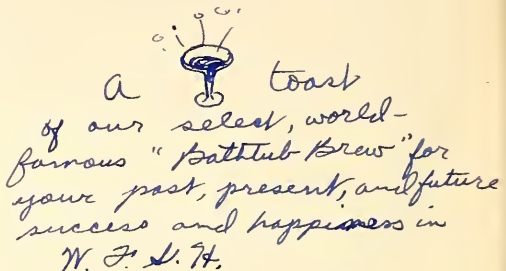 A toast
of our select, world-
famous "Bathtub Brew" for
your past, present, and future
success and happiness in
W. F. S. H.